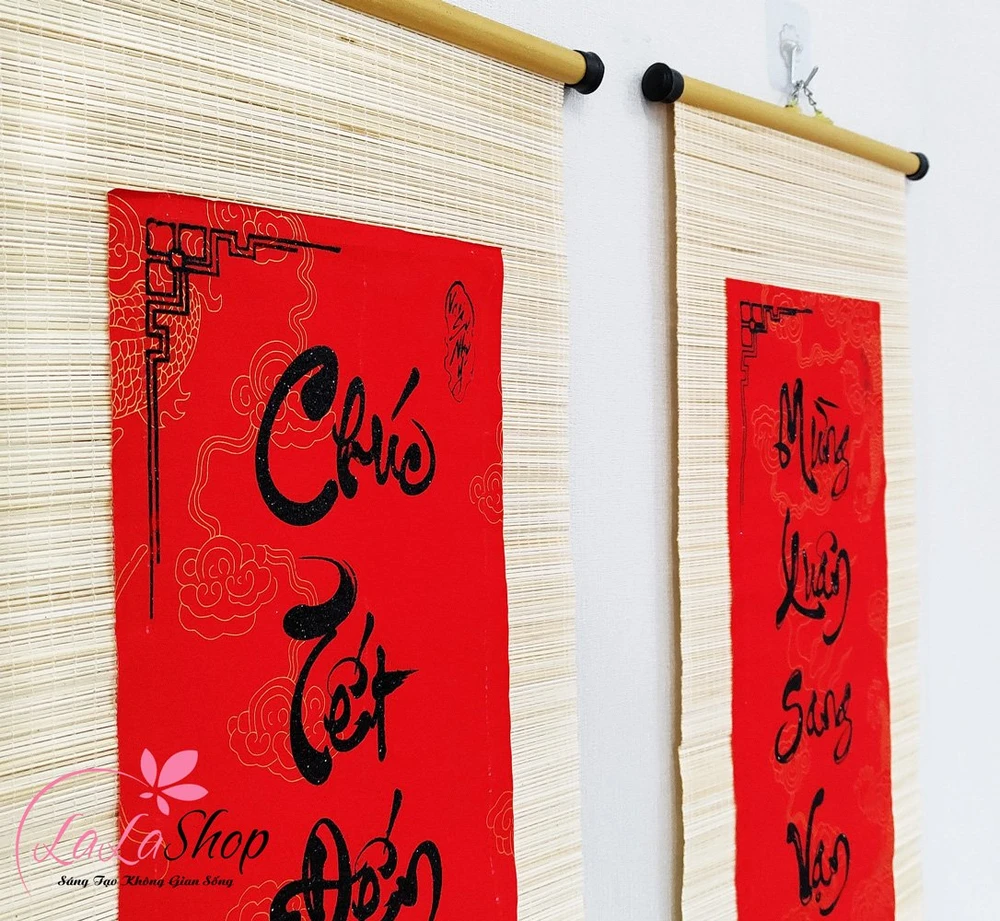 Chúc
Tết
Đến
Mừng
Xuân
Sang
Vạn
LaLa Shop
Sáng Tạo Không Gian Sống